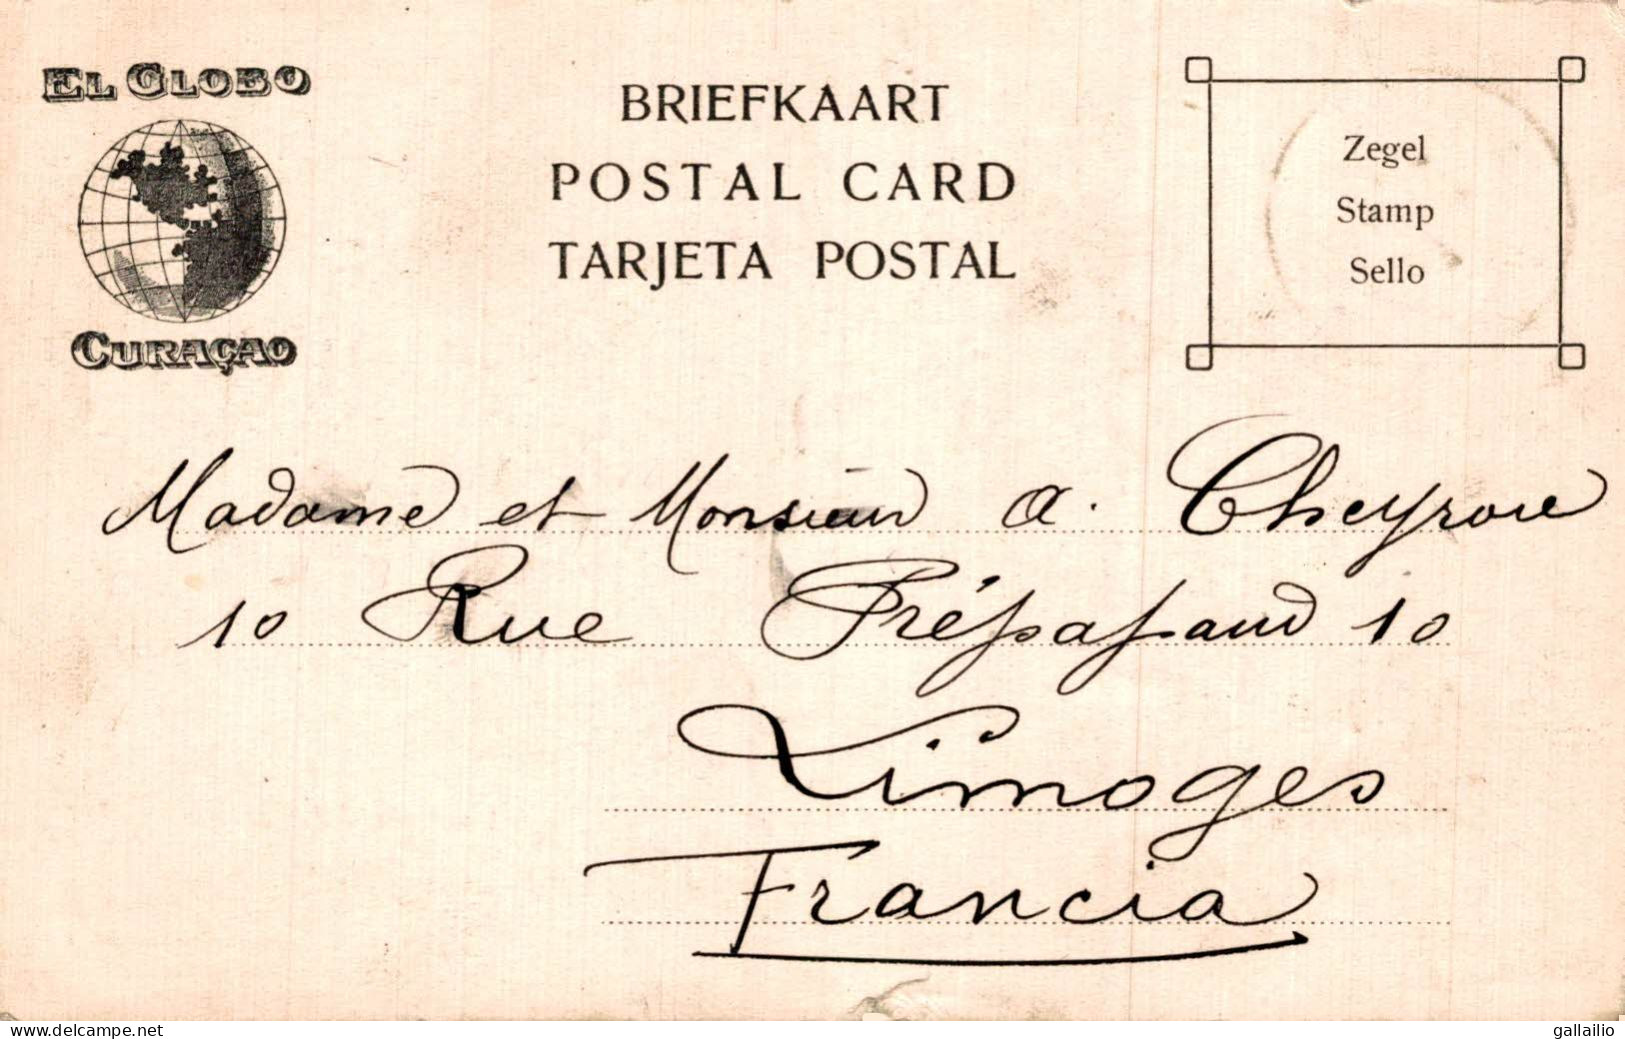 EL GLOBO
CURAÇAO
BRIEFKAART
POSTAL CARD
TARJETA POSTAL
Zegel
Stamp
Sello
Madame et Monsieur A. Cheyrou
10 Rue Prépapaud 10
Limoges
Francia
www.delcampe.net
gallailio